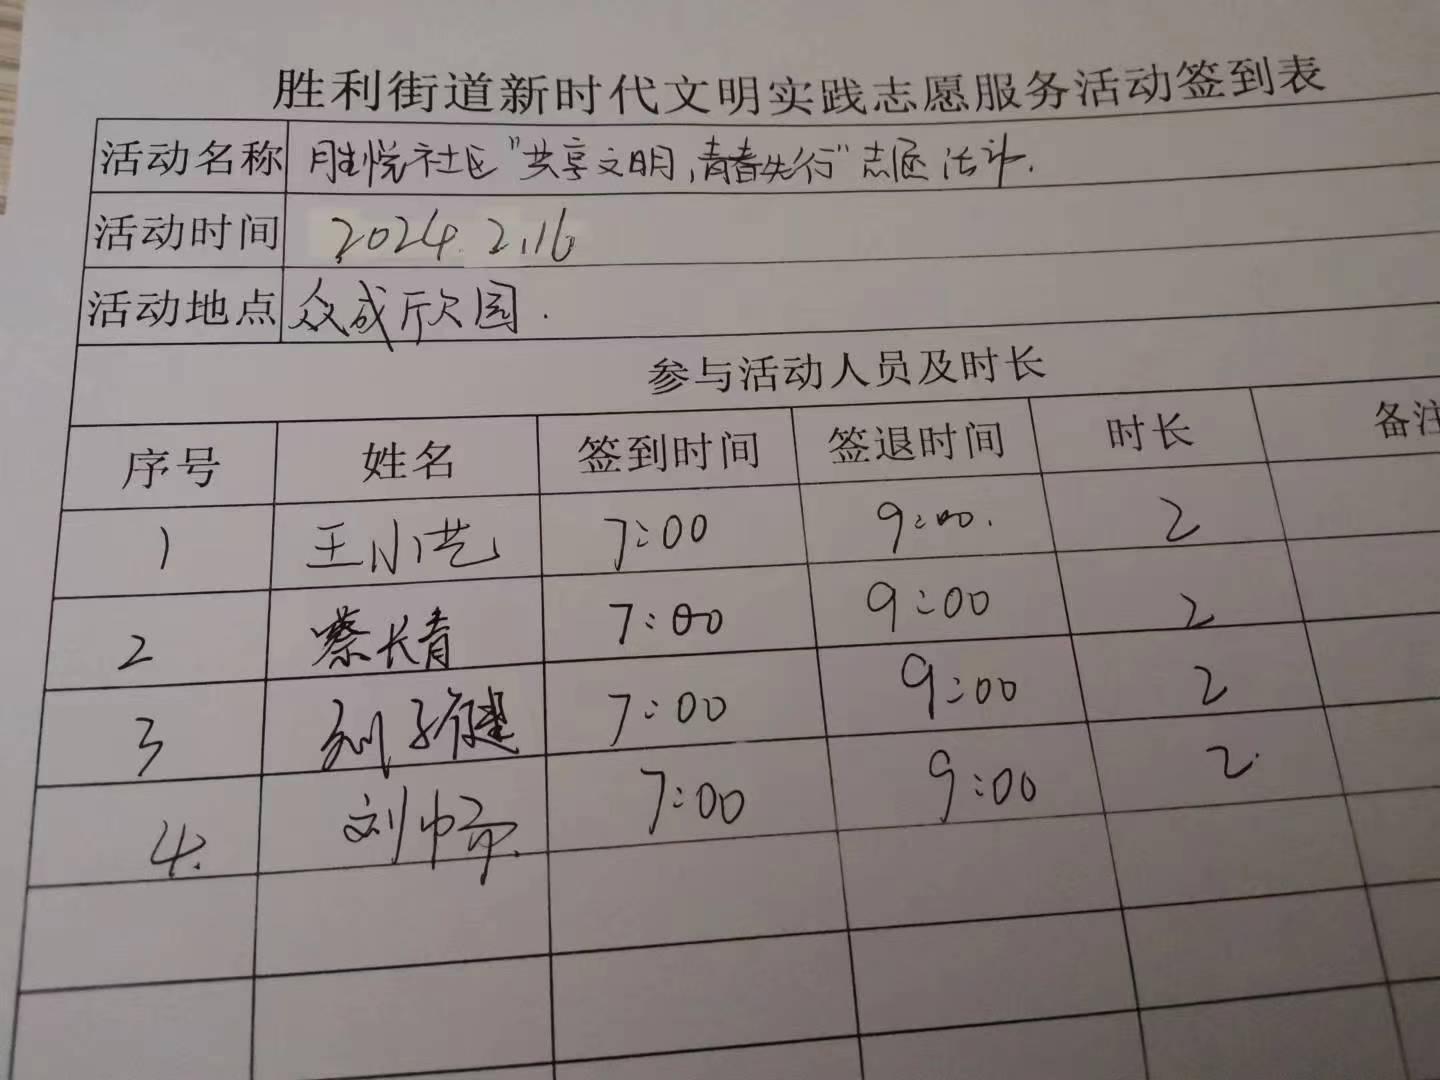 胜利街道新时代文明实践志愿服务活动签到表
活动名称 胜悦社区"共享文明,青春先行"志愿活动.
活动时间 2024.2.16
活动地点 众成欣园.
参与活动人员及时长
序号 姓名 签到时间 签退时间 时长 备注
1 王小艺 7:00 9:00. 2
2 蔡长青 7:00 9:00 2
3 刘子健 7:00 9:00 2
4. 刘 7:00 9:00 2.